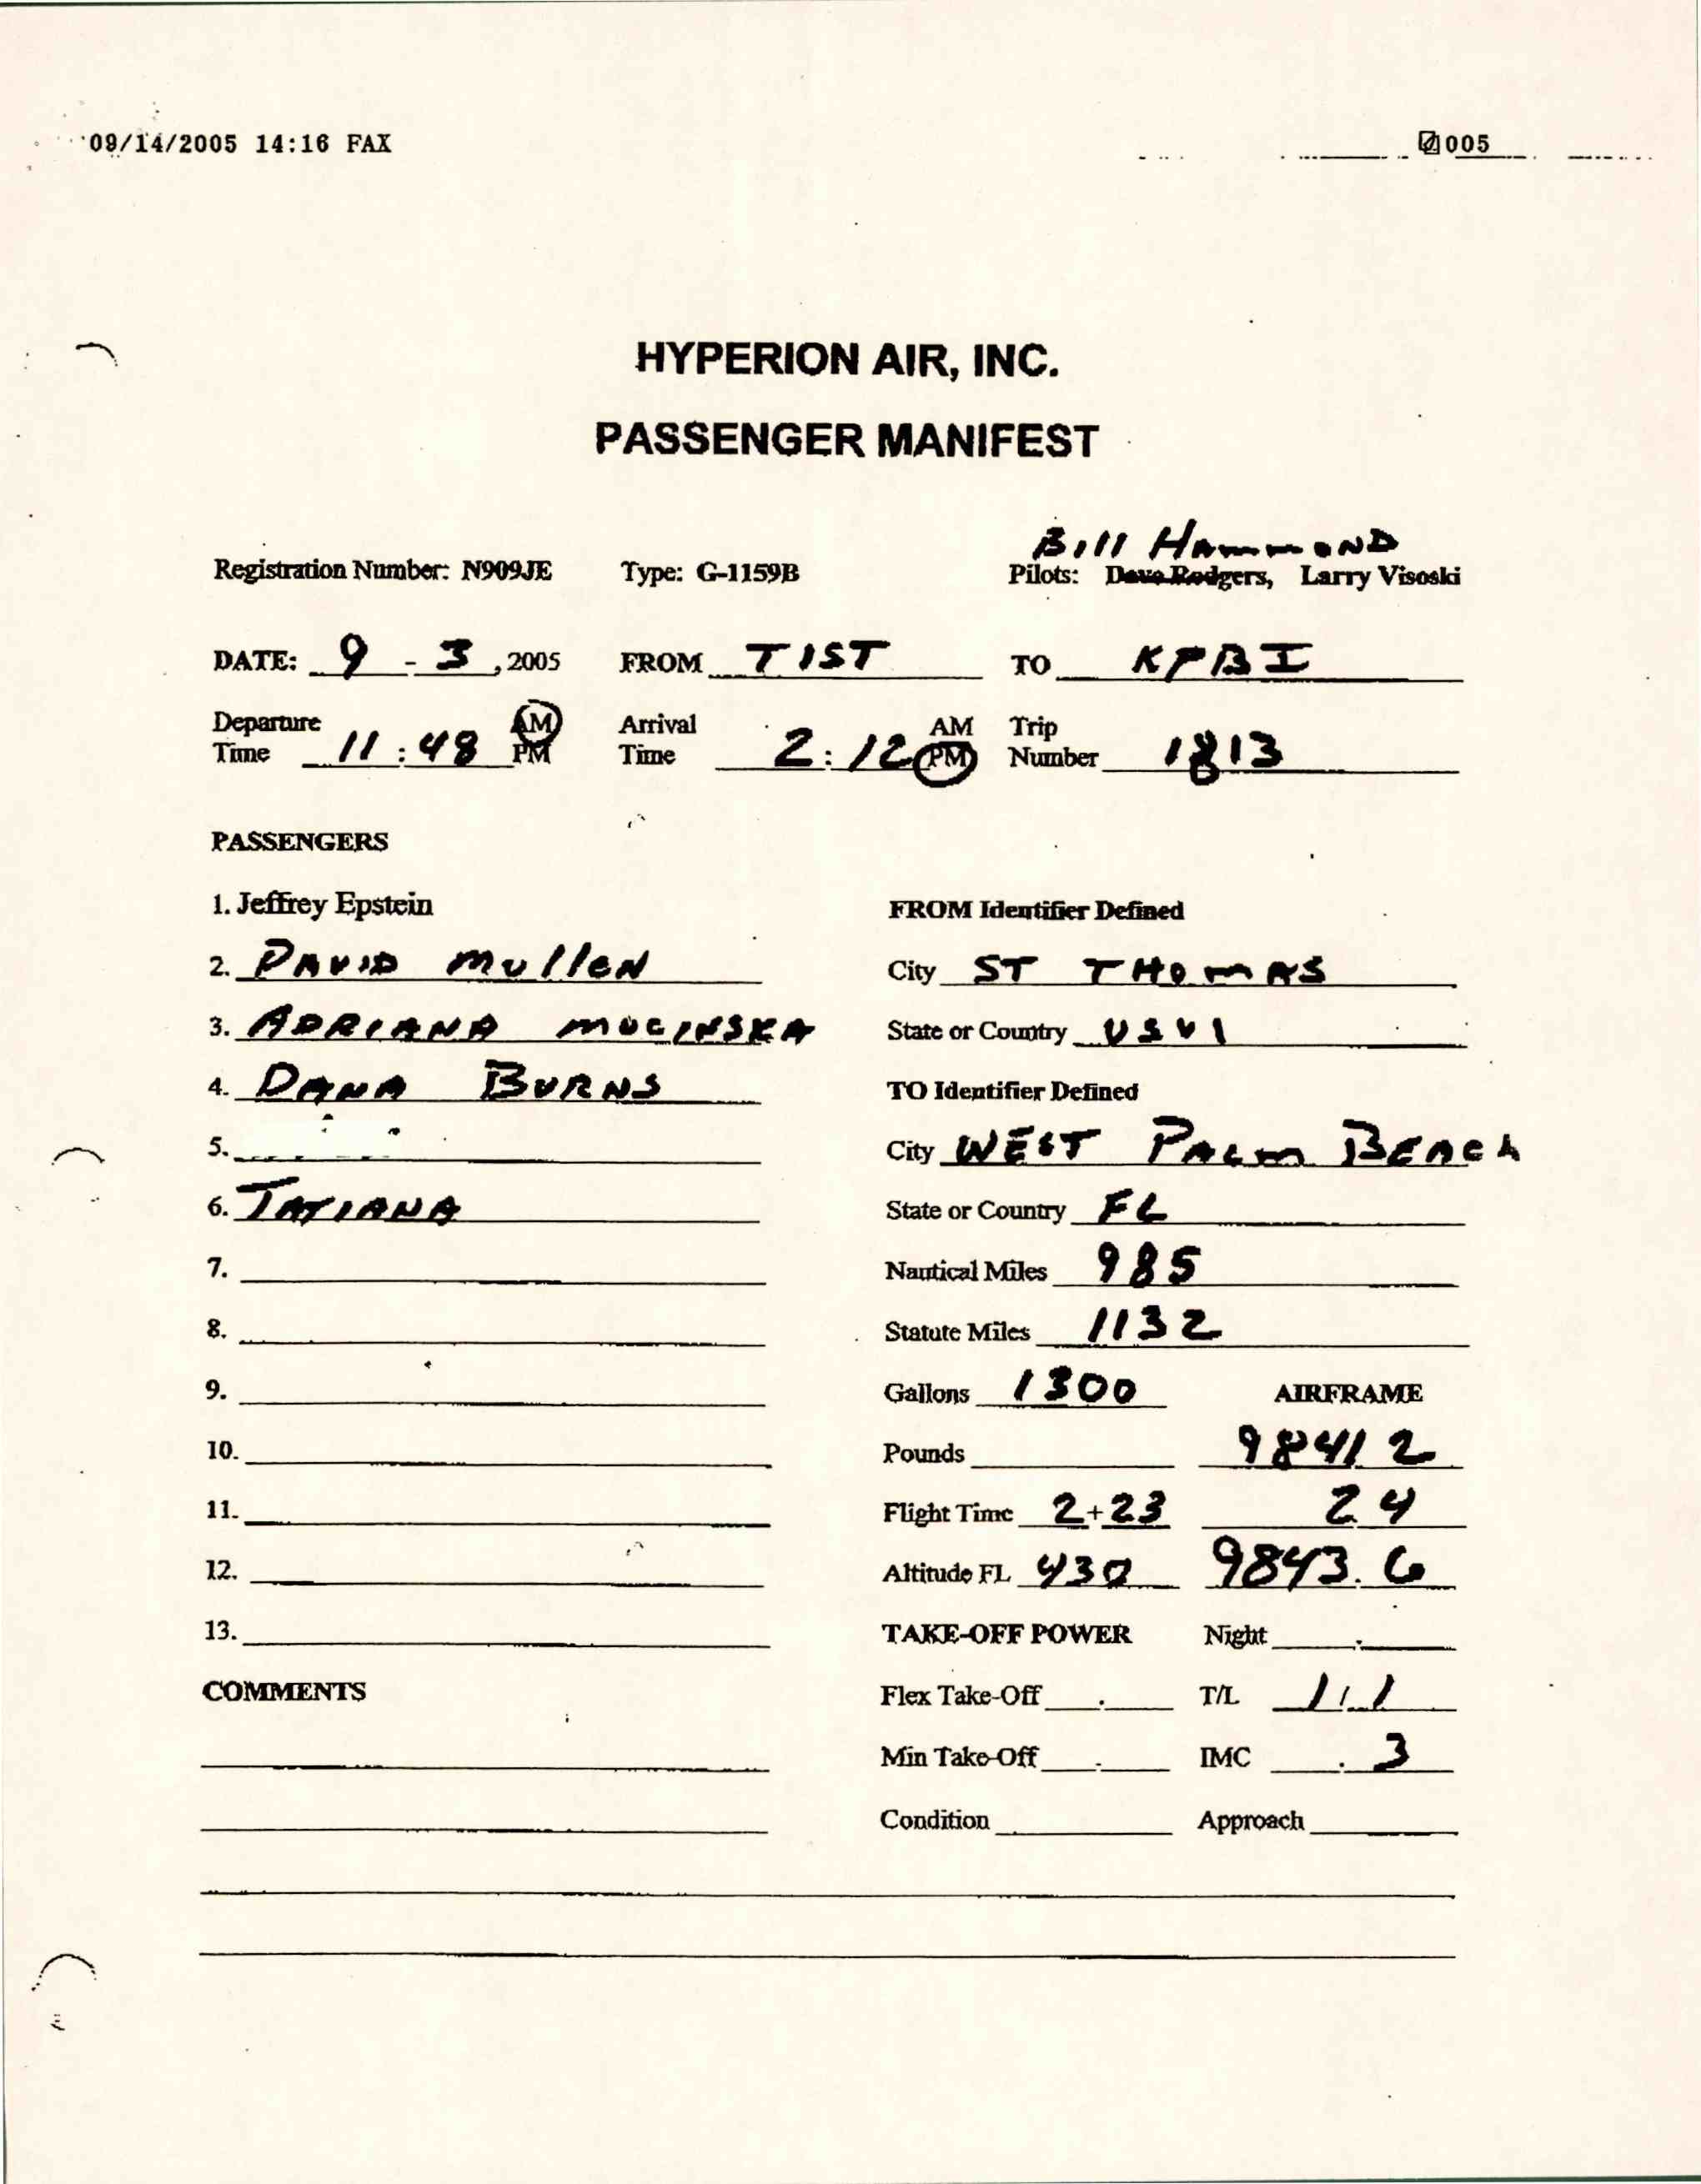 09/14/2005 14:16 FAX 005
HYPERION AIR, INC.
PASSENGER MANIFEST
Bill HAmmOND
Registration Number: N909JE Type: G-1159B Pilots: Dave Rodgers, Larry Visoski
DATE: 9 - 3, 2005 FROM TIST TO KPBI
Departure AM Arrival AM Trip
Time 11:48 PM Time 2:12 PM Number 1813
PASSENGERS
1. Jeffrey Epstein FROM Identifier Defined
2. DAVID mullEN City ST THOMAS
3. ADRIANA MUCINSKA State or Country USVI
4. DANA BURNS TO Identifier Defined
5. City WEST PALM BEACh
6. TATIANA State or Country FL
7. Nautical Miles 985
8. Statute Miles 1132
9. Gallons 1300 AIRFRAME
10. Pounds 9841 2
11. Flight Time 2+23 2 4
12. Altitude FL 430 9843.6
13. TAKE-OFF POWER Night .
COMMENTS Flex Take-Off . T/L 1/1
Min Take-Off . IMC . 3
Condition Approach